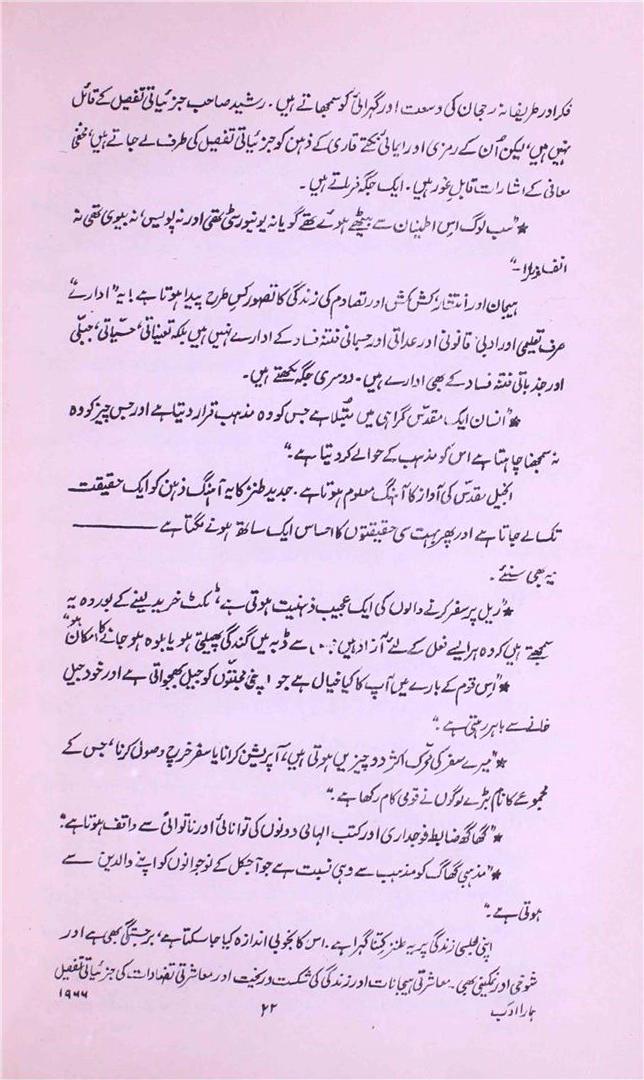 فکر اور ظریفانہ رجحان کی وسعت اور گہرائی کو سمجھاتے ہیں۔ رشید صاحب جزئیاتی تفصیل کے قائل
نہیں ہیں، لیکن اُن کے رمزی اور ایمائی نکتے قاری کے ذہن کو جزئیاتی تفصیل کی طرف لے جاتے ہیں، مخفی
معانی کے اشارات قابلِ غور ہیں۔ ایک جگہ فرماتے ہیں۔
★ "سب لوگ اِس اطمینان سے بیٹھے ہوئے تھے گویا نہ یونیورسٹی تھی اور نہ پولیس، نہ بیوی تھی نہ
انفلوئنزا۔"
ہیجان اور انتشار، کشمکش اور تصادم کی زندگی کا تصور کس طرح پیدا ہوتا ہے! یہ "ادارے"
صرف تعلیمی اور ادبی، قانونی اور عدالتی اور جسمانی فتنہ فساد کے ادارے نہیں ہیں بلکہ تعیناتی، حسیّاتی، جبلّی
اور جذباتی فتنہ فساد کے بھی ادارے ہیں۔ دوسری جگہ لکھتے ہیں۔
★ "انسان ایک مقدّس گمراہی میں مبتلا ہے جس کو وہ مذہب قرار دیتا ہے اور جس چیز کو وہ
نہ سمجھنا چاہتا ہے اس کو مذہب کے حوالے کر دیتا ہے۔"
انجیل مقدّس کی آواز کا آہنگ معلوم ہوتا ہے۔ جدید طنز کا یہ آہنگ ذہن کو ایک حقیقت
تک لے جاتا ہے اور پھر بہت سی حقیقتوں کا احساس ایک ساتھ ہونے لگتا ہے ———
یہ بھی سنیئے۔
★ "ریل پر سفر کرنے والوں کی ایک عجیب ذہنیت ہوتی ہے، ٹکٹ خرید لینے کے بعد وہ یہ
سمجھتے ہیں کہ وہ ہر ایسے فعل کے لئے آزاد ہیں جس سے ڈبہ میں گندگی پھیلتی ہو یا بلوہ ہو جانے کا امکان ہو"
★ "اِس قوم کے بارے میں آپ کا کیا خیال ہے جو اپنی محبتوں کو جیل بھجواتی ہے اور خود جیل
خانے سے باہر رہتی ہے۔"
★ "میرے سفر کی محرّک اکثر دو چیزیں ہوتی ہیں، آپریشن کرانا یا سفر خرچ وصول کرنا، جس کے
مجموعے کا نام بڑے لوگوں نے قومی کام رکھا ہے۔"
★ "گھاگھ ضابطہ فوجداری اور کتب الہامی دونوں کی توانائی اور ناتوانی سے واقف ہوتا ہے۔"
★ "مذہبی گھاگ کو مذہب سے وہی نسبت ہے جو آجکل کے نوجوانوں کو اپنے والدین سے
ہوتی ہے۔"
اپنی مجلسی زندگی پر یہ طنز کتنا گہرا ہے۔ اس کا بخوبی اندازہ کیا جا سکتا ہے، برجستگی بھی ہے اور
شوخی اور نمکینی بھی۔ معاشرتی ہیجانات اور زندگی کی شکست و ریخت اور معاشرتی تضادات کی جزئیاتی تفصیل
ہمارا ادب
۴۲
۱۹۶۶